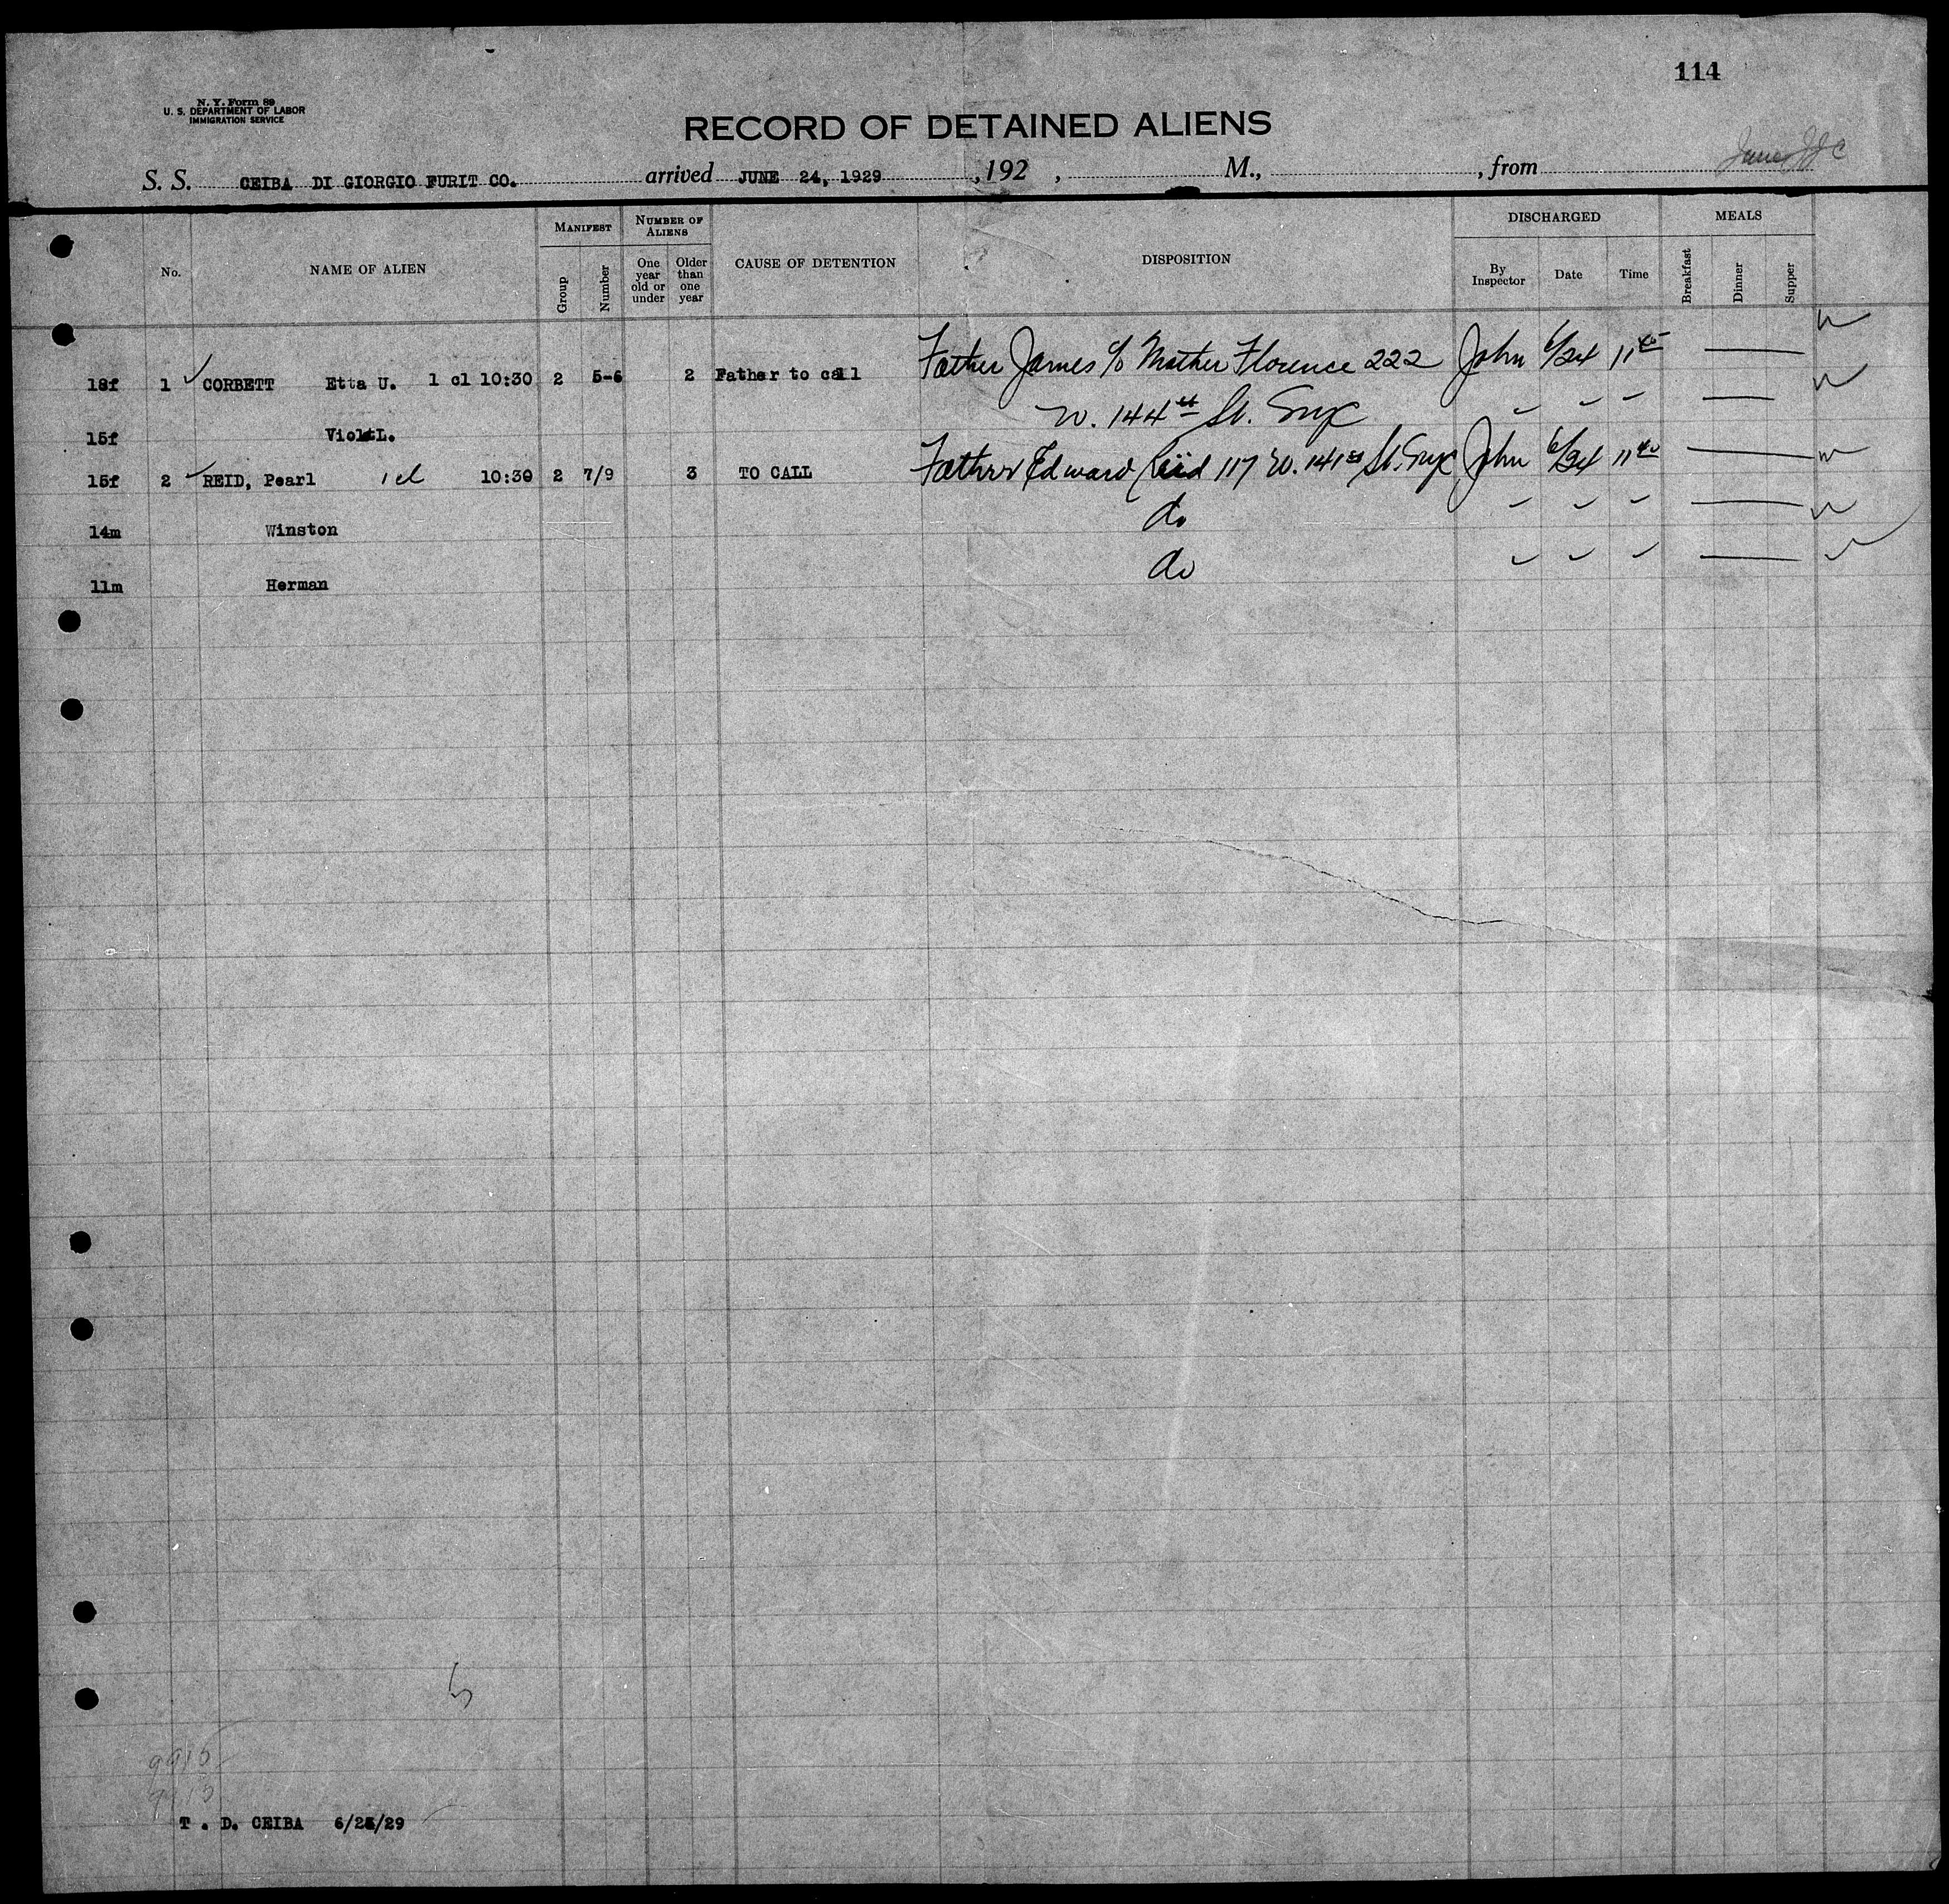 114
N. Y. Form 89
U. S. DEPARTMENT OF LABOR
IMMIGRATION SERVICE
RECORD OF DETAINED ALIENS
S. S. CEIBA DI GIORGIO FURIT CO. arrived JUNE 24, 1929, 192 , M., , from
MANIFEST NUMBER OF ALIENS DISCHARGED MEALS
No. NAME OF ALIEN Group Number One year old or under Older than one year CAUSE OF DETENTION DISPOSITION By Inspector Date Time Breakfast Dinner Supper
18f 1 ✓ CORBETT Etta U. 1 cl 10:30 2 5-6 2 Father to call Father James c/o Mother Florence 222 John 6/24 11
W. 144th St. NYC
15f Violet L.
15f 2 ✓ REID, Pearl 1 cl 10:30 2 7/9 3 TO CALL Father Edward Reid 117 W. 141st St. NYC John 6/24 11 40
14m Winston do
11m Herman do
5
9915
T . D. CEIBA 6/25/29